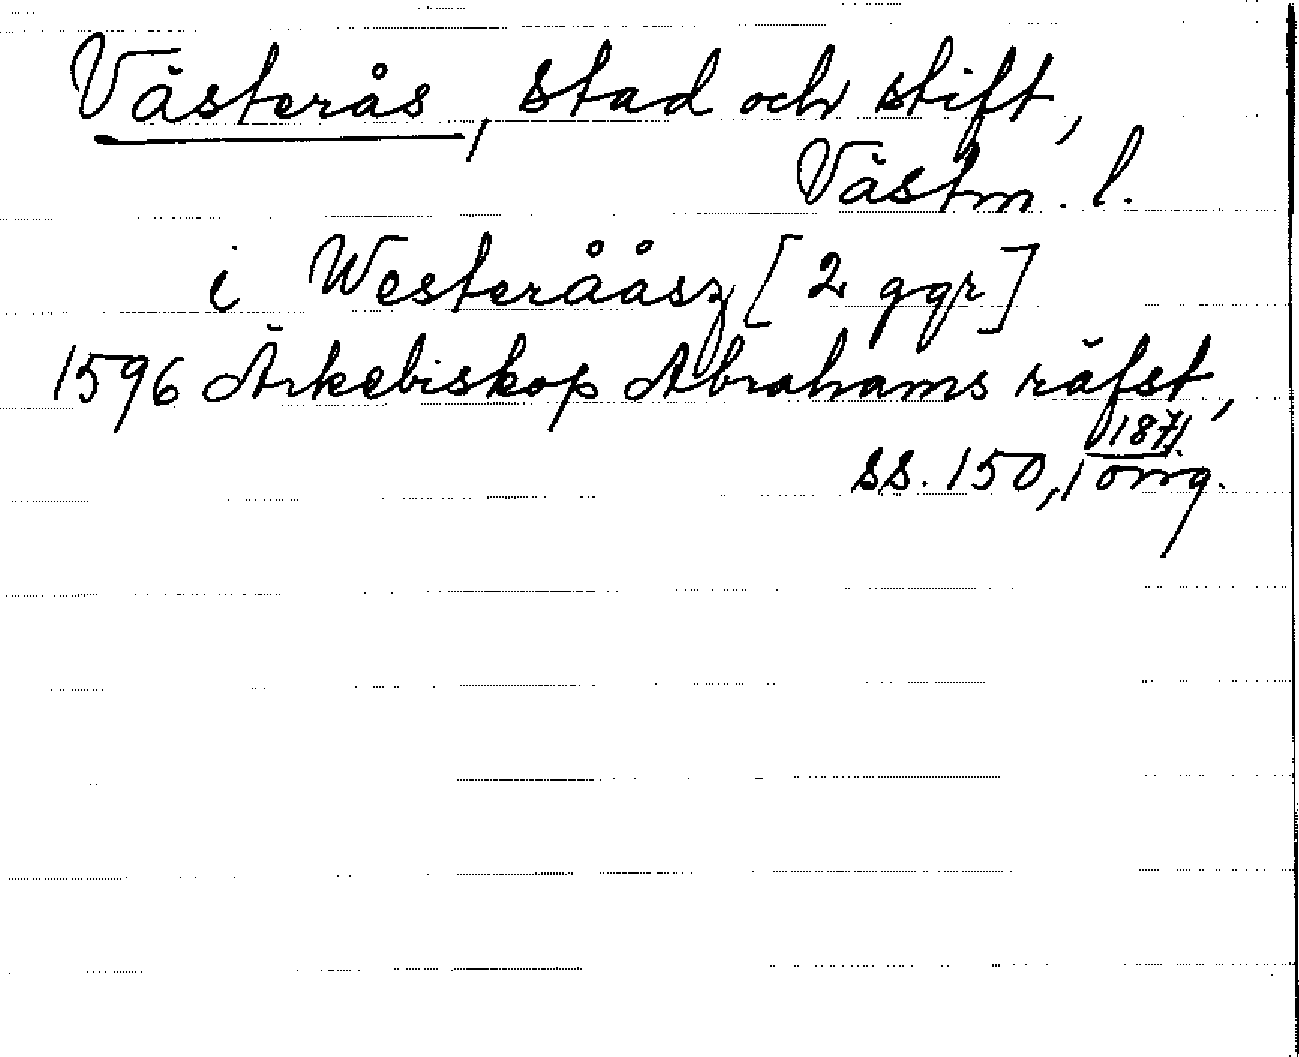 Västerås, stad och stift,
Västm. l.
i Westerååsz [2 ggr]
1596 Ärkebiskop Abrahams räfst,
ss. 150, 187,
omg.